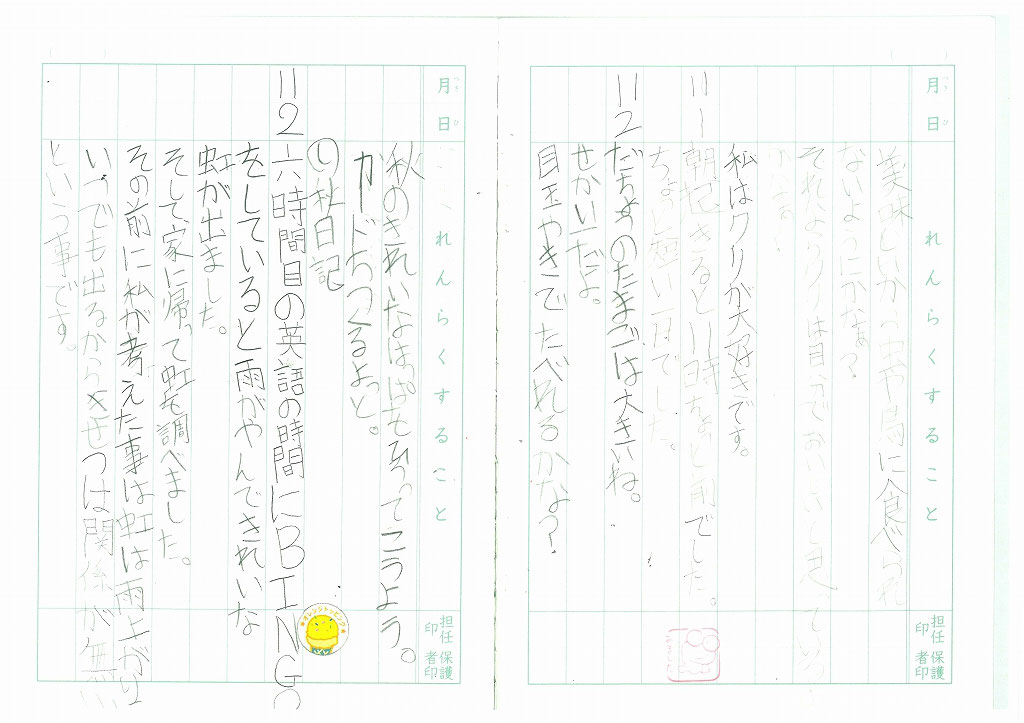 月日
れんらくすること
担任印
保護者印
美味しいから虫や鳥に食べられ
ないようにかなぁ?
それより は自分でおいしいと思って
かな?
私はクリが大好きです。
11 1 朝起きると11時ちょっと前でした。
ちょっと短い一日でした。
11 2 だちょうのたまごは大きいね。
せかい一だよ。
目玉やきこでたべれるかな?
月日
れんらくすること
担任印
保護者印
秋のきれいなはっぱをひろってこうよう。
カードをつくるよっと。
秋日記
11 2 六時間目の英語の時間にBINGO
をしていると雨がやんできれいな
虹が出ました。
そして、家に帰って虹を調べました。
その前に私が考えた事は虹は雨上がり
いつでも出るから きせつは関係が無い
という事です。
オレンジトッピング